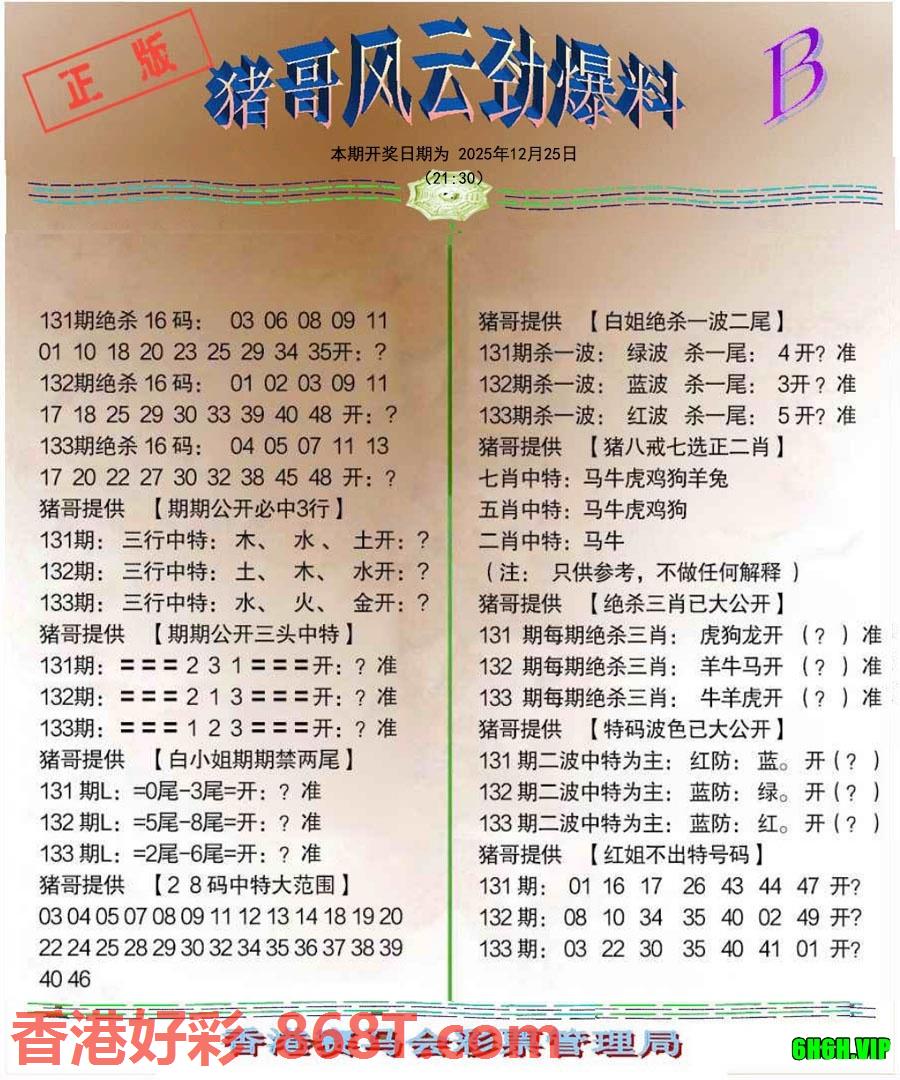 正版
猪哥风云劲爆料
B
本期开奖日期为 2025年12月25日
(21:30)
131期绝杀16码: 03 06 08 09 11
01 10 18 20 23 25 29 34 35开:?
132期绝杀16码: 01 02 03 09 11
17 18 25 29 30 33 39 40 48 开:?
133期绝杀16码: 04 05 07 11 13
17 20 22 27 30 32 38 45 48 开:?
猪哥提供 【期期公开必中3行】
131期: 三行中特: 木、 水、 土开:?
132期: 三行中特: 土、 木、 水开:?
133期: 三行中特: 水、 火、 金开:?
猪哥提供 【期期公开三头中特】
131期: 〓〓〓2 3 1〓〓〓开:? 准
132期: 〓〓〓2 1 3〓〓〓开:? 准
133期: 〓〓〓1 2 3〓〓〓开:? 准
猪哥提供 【白小姐期期禁两尾】
131 期L: =0尾-3尾=开:? 准
132 期L: =5尾-8尾=开:? 准
133 期L: =2尾-6尾=开:? 准
猪哥提供 【2 8码中特大范围】
03 04 05 07 08 09 11 12 13 14 18 19 20
22 24 25 28 29 30 32 34 35 36 37 38 39
40 46
猪哥提供 【白姐绝杀一波二尾】
131期杀一波: 绿波 杀一尾: 4开? 准
132期杀一波: 蓝波 杀一尾: 3开? 准
133期杀一波: 红波 杀一尾: 5开? 准
猪哥提供 【猪八戒七选正二肖】
七肖中特: 马牛虎鸡狗羊兔
五肖中特: 马牛虎鸡狗
二肖中特: 马牛
(注: 只供参考,不做任何解释)
猪哥提供 【绝杀三肖已大公开】
131 期每期绝杀三肖: 虎狗龙开 (?)准
132 期每期绝杀三肖: 羊牛马开 (?)准
133 期每期绝杀三肖: 牛羊虎开 (?)准
猪哥提供 【特码波色已大公开】
131期二波中特为主: 红防: 蓝。 开(?)
132期二波中特为主: 蓝防: 绿。 开(?)
133期二波中特为主: 蓝防: 红。 开(?)
猪哥提供 【红姐不出特号码】
131期: 01 16 17 26 43 44 47 开?
132期: 08 10 34 35 40 02 49 开?
133期: 03 22 30 35 40 41 01 开?
香港好彩 868T.com
香港赛马会彩票管理局
6H6H.VIP